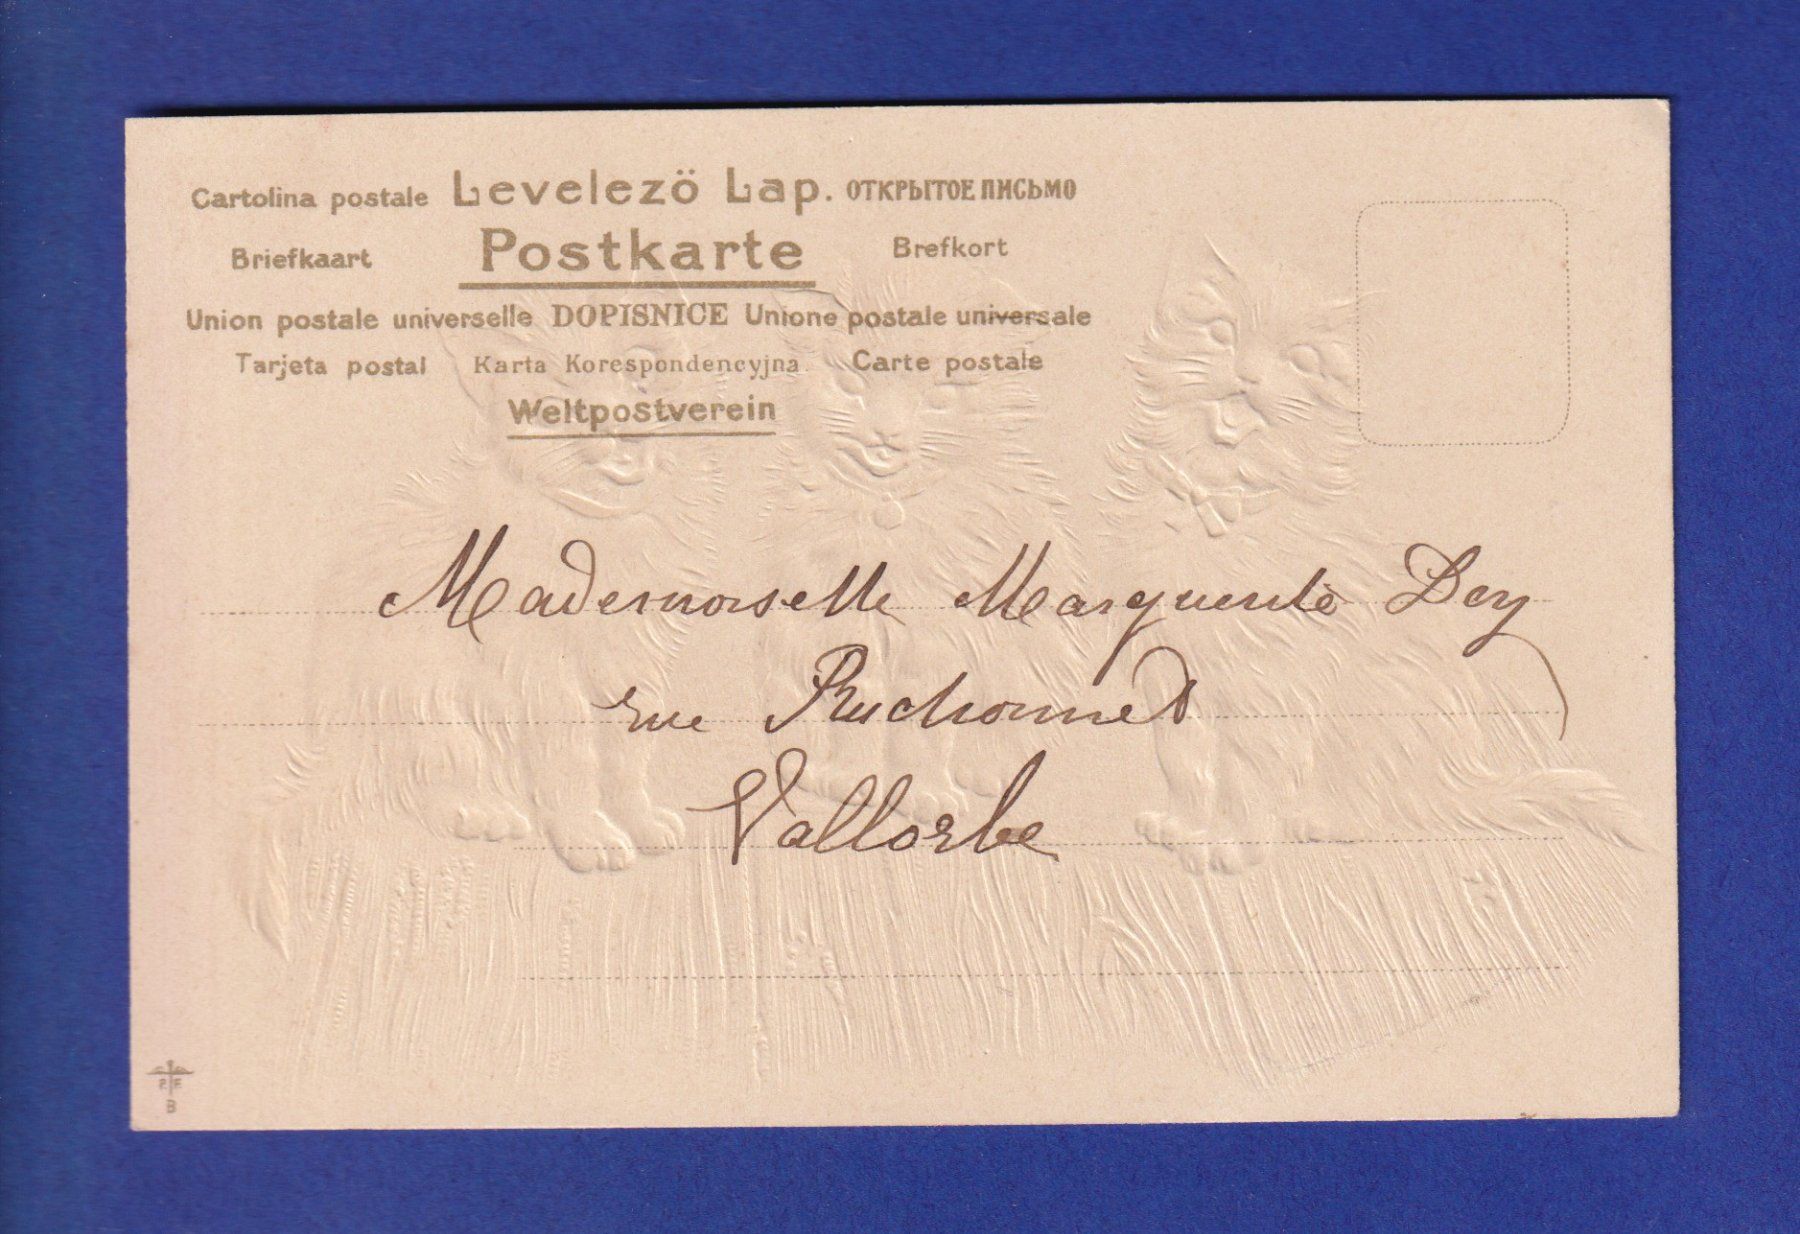 Cartolina postale Levelezö Lap. ОТКРЫТОЕ ПИСЬМО
Briefkaart Postkarte Brefkort
Union postale universelle DOPISNICE Unione postale universale
Tarjeta postal Karta Korespondencyjna. Carte postale
Weltpostverein
Mademoiselle Marguerite Dey
rue Ruchonnet
Vallorbe
P F
B